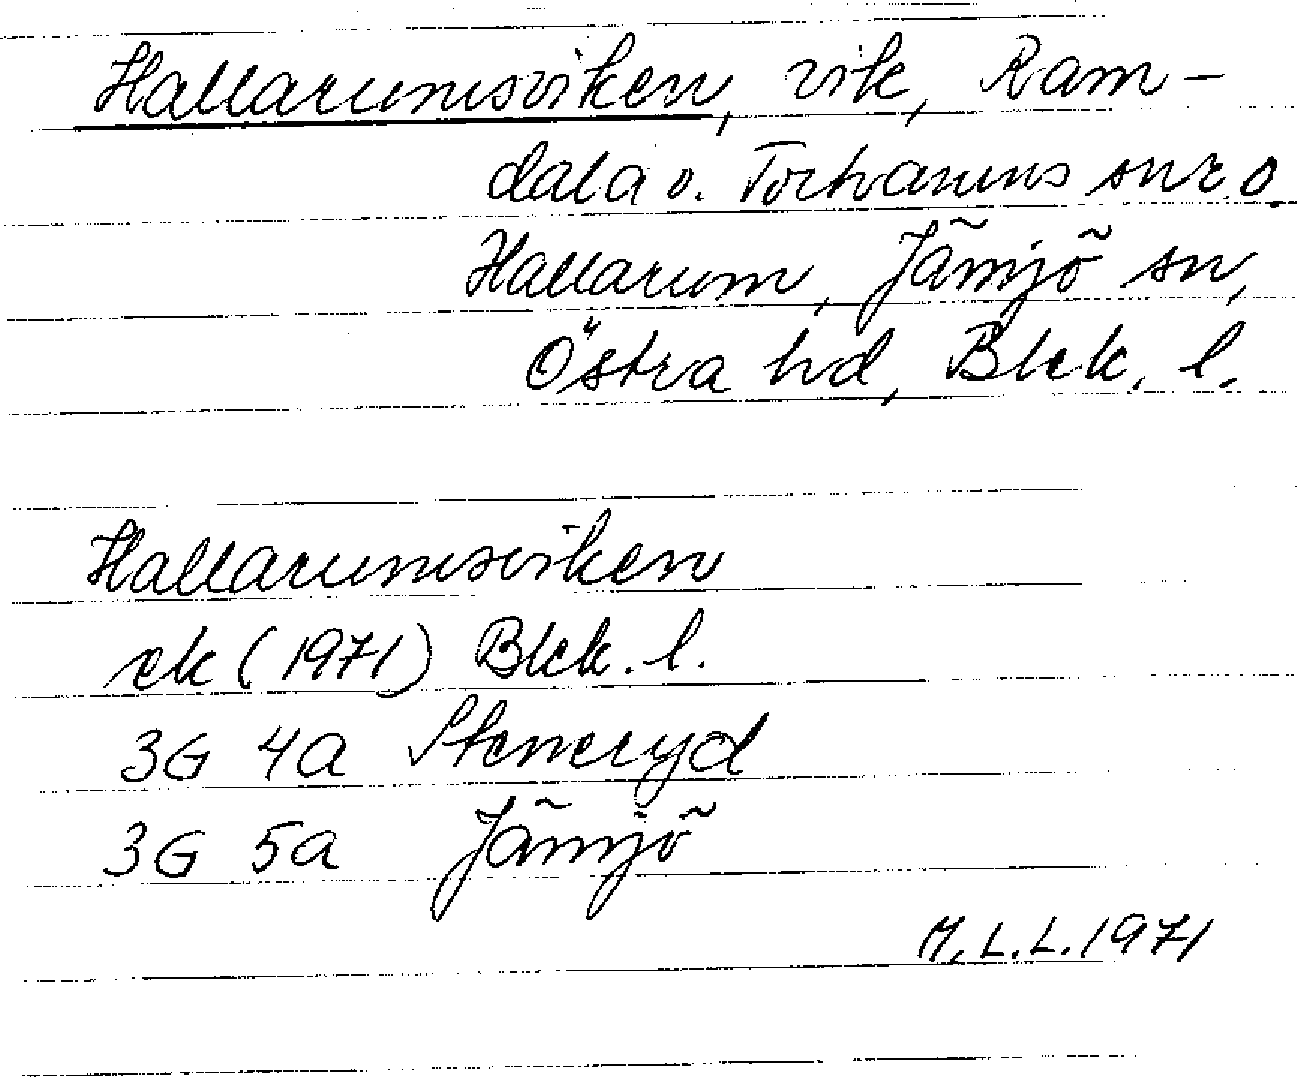 Hallarumsviken, vik, Ram-
dala o. Torhamns snr o.
Hallarum, Jämjö sn,
Östra hd, Blek. l.
Hallarumsviken
ek (1971) Blek. l.
3G 4a Steneryd
3G 5a Jämjö
M.L.L. 1971